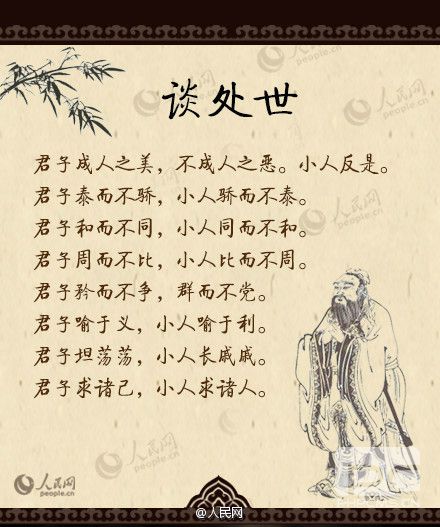 人民网
people.cn
谈处世
君子成人之美，不成人之恶。小人反是。
君子泰而不骄，小人骄而不泰。
君子和而不同，小人同而不和。
君子周而不比，小人比而不周。
君子矜而不争，群而不党。
君子喻于义，小人喻于利。
君子坦荡荡，小人长戚戚。
君子求诸己，小人求诸人。
人民网
people.cn
@人民网